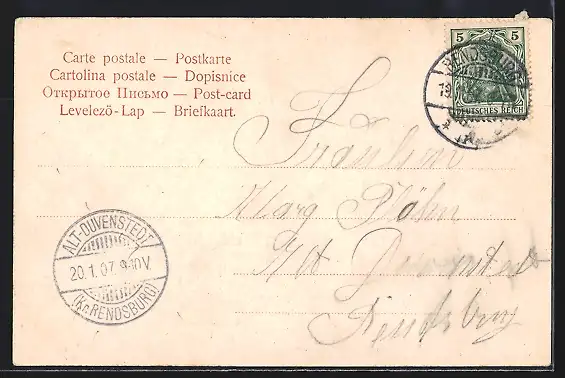 Carte postale — Postkarte
Cartolina postale — Dopisnice
Открытое Письмо — Post-card
Levelezö-Lap — Briefkaart.
5 5
DEUTSCHES REICH
RENDSBURG
19.
Fräulein
Alt Duvenstedt
Rendsburg
ALT-DUVENSTEDT
20.1.07. 9-10V.
(Kr. RENDSBURG)